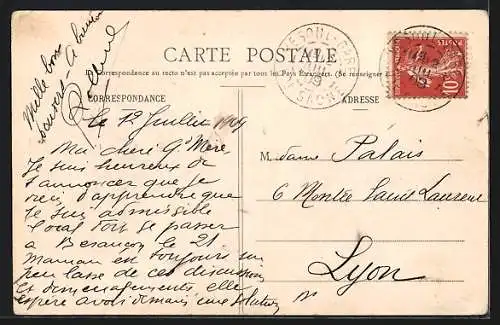 Mille bons
baisers - A bientôt
CARTE POSTALE
La Correspondance au recto n'est pas acceptée par tous les Pays Étrangers. (Se renseigner
CORRESPONDANCE
ADRESSE
VESOUL-GARE
POSTES
10
le 12 Juillet 1909
Ma chère Gd Mère,
Je suis heureux de
t'annoncer que je
viens d'apprendre que
je suis admissible
l'oral doit se passer
à Besançon le 21
Maman est toujours un
peu lasse de ces
et déménagements elle
espère avoir demain une solution
Madame Palais
6 Montée Saint Laurent
Lyon